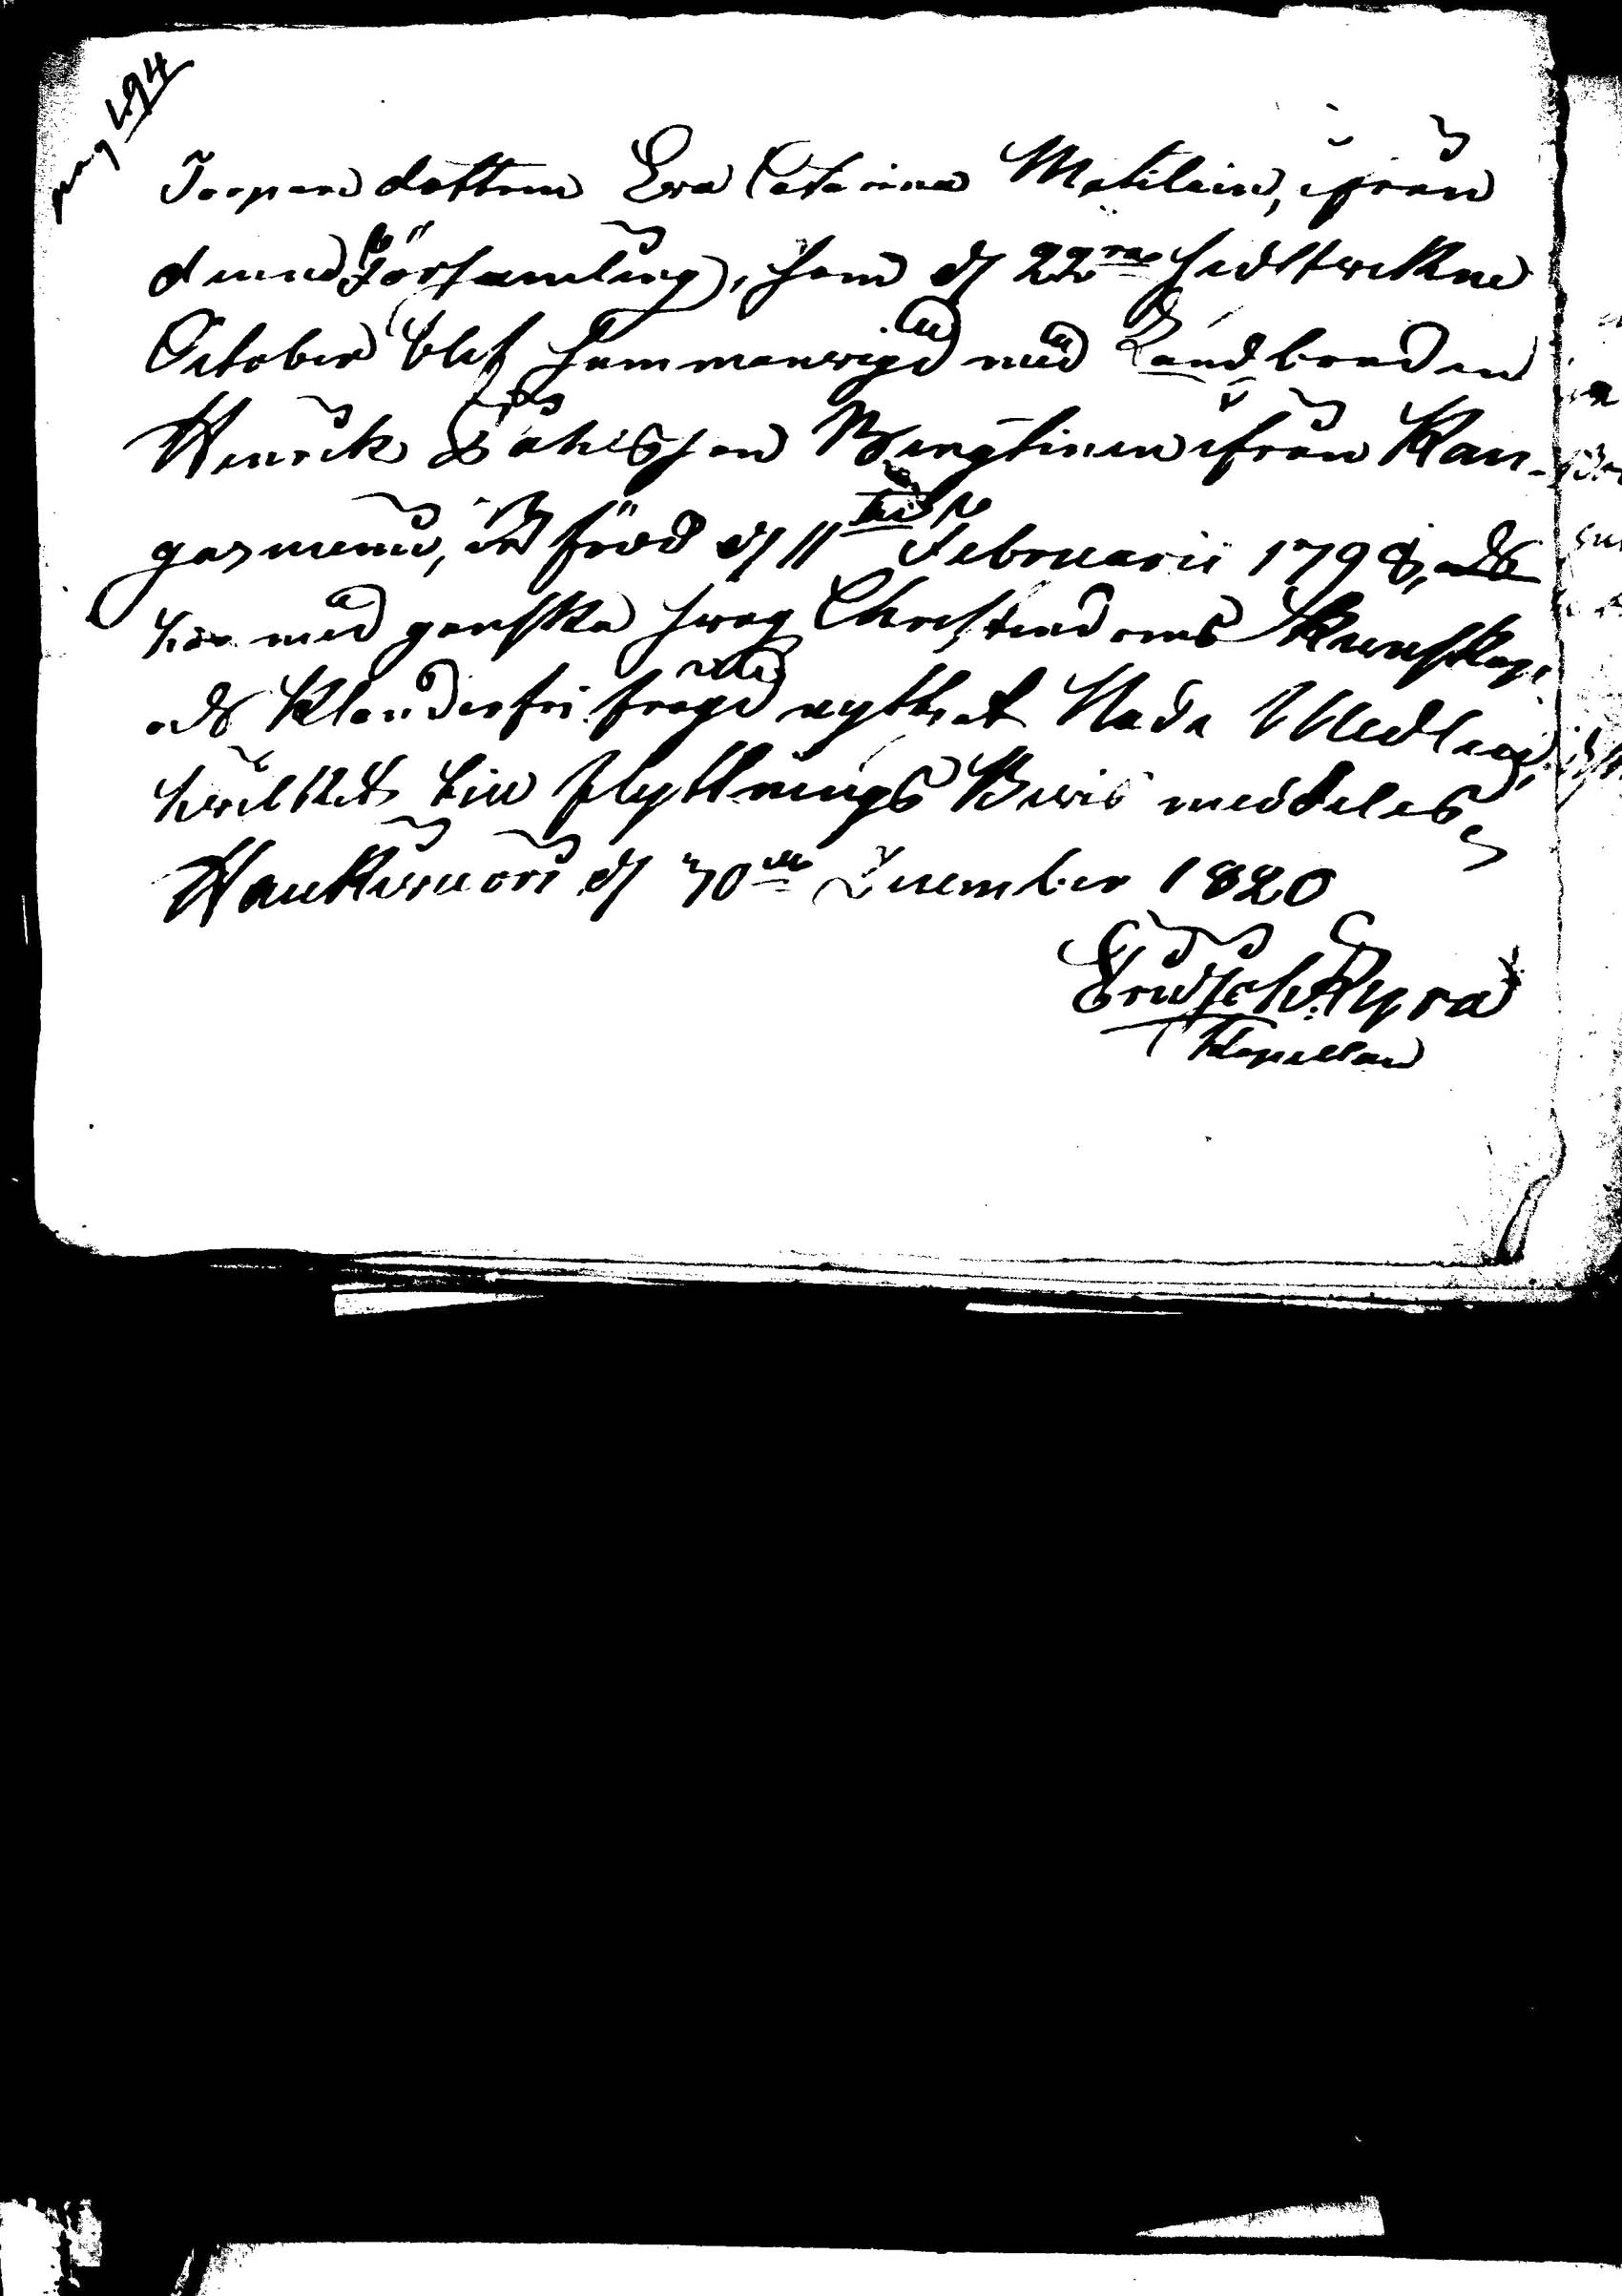 pag 494
Torpare dottren Eva Catarina Matilain, ifrån
denne Församling, som d/ 22ra sidstwekne
October blef sammanvigd med Landbonden
Henrik Påhlsson Berghinen ifrån Kan-
gasniemi, är född d/ 11te Februarii 1798, och
har med ganska swag Christendoms Kunskap,
och klanderfri fregd nyttjat Nåda Medlen,
hwilket till Flyttnings Bewis meddelas,
Haukivuori d/ 30de December 1820
Kyra
Kapellan